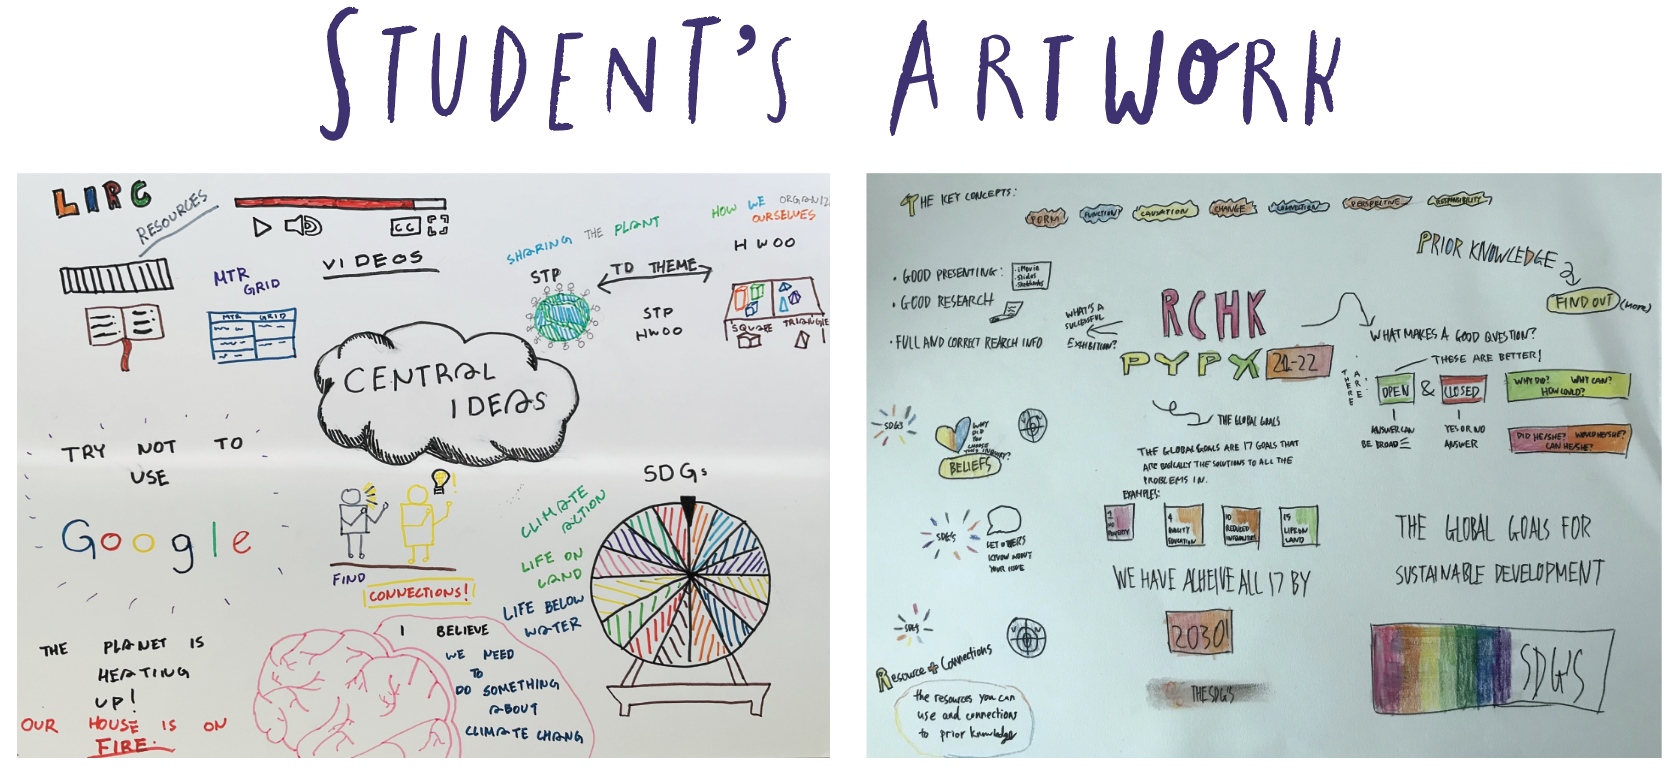 STUDENT'S ARTWORK
LIRC
RESOURCES
CC
VIDEOS
MTR
GRID
MTR GRID
SHARING THE PLANT
STP
TD THEME
STP
HWOO
HOW WE ORGANIZ
OURSELVES
HWOO
SQUARE TRIANGLE
CENTRAL
IDEAS
TRY NOT TO
USE
Google
FIND
CONNECTIONS!
SDGs
CLIMATE
ACTION
LIFE ON
LAND
LIFE BELOW
WATER
THE PLANET IS
HEATING
UP!
OUR HOUSE IS ON
FIRE.
I BELIEVE
WE NEED
TO
DO SOMETHING
ABOUT
CLIMATE CHANG
THE KEY CONCEPTS:
FORM
FUNCTION
CAUSATION
CHANGE
CONNECTION
PERSPECTIVE
RESPONSIBILITY
PRIOR KNOWLEDGE
FIND OUT (MORE)
• GOOD PRESENTING:
• iMovie
• Slides
• GOOD RESEARCH
• FULL AND CORRECT REARCH INFO
WHAT'S A
SUCCESSFUL
EXHIBITION?
RCHK
PYPX 21-22
WHAT MAKES A GOOD QUESTION?
THESE ARE BETTER!
THERE ARE:
OPEN & CLOSED
ANSWER CAN
BE BROAD
YES OR NO
ANSWER
WHY DID? WHY CAN?
HOW COULD?
DID HE/SHE? WOULD HE/SHE?
CAN HE/SHE?
SDG'S
WHY
DID
YOU
CHOOSE
THIS INQUIRY?
BELIEFS
THE GLOBAL GOALS
THE GLOBAL GOALS ARE 17 GOALS THAT
ARE BASICALLY THE SOLUTIONS TO ALL THE
PROBLEMS IN.
EXAMPLES:
1
NO
POVERTY
4
QUALITY
EDUCATION
10
REDUCED
INEQUALITIES
15
LIFE ON
LAND
SDG'S
LET OTHERS
KNOW ABOUT
YOUR IDEE
WE HAVE ALHEIVE ALL 17 BY
2030
THE SDG'S
THE GLOBAL GOALS FOR
SUSTAINABLE DEVELOPMENT
SDG'S
SDG'S
UN
Resource + Connections
the resources you can
use and connections
to prior knowledge